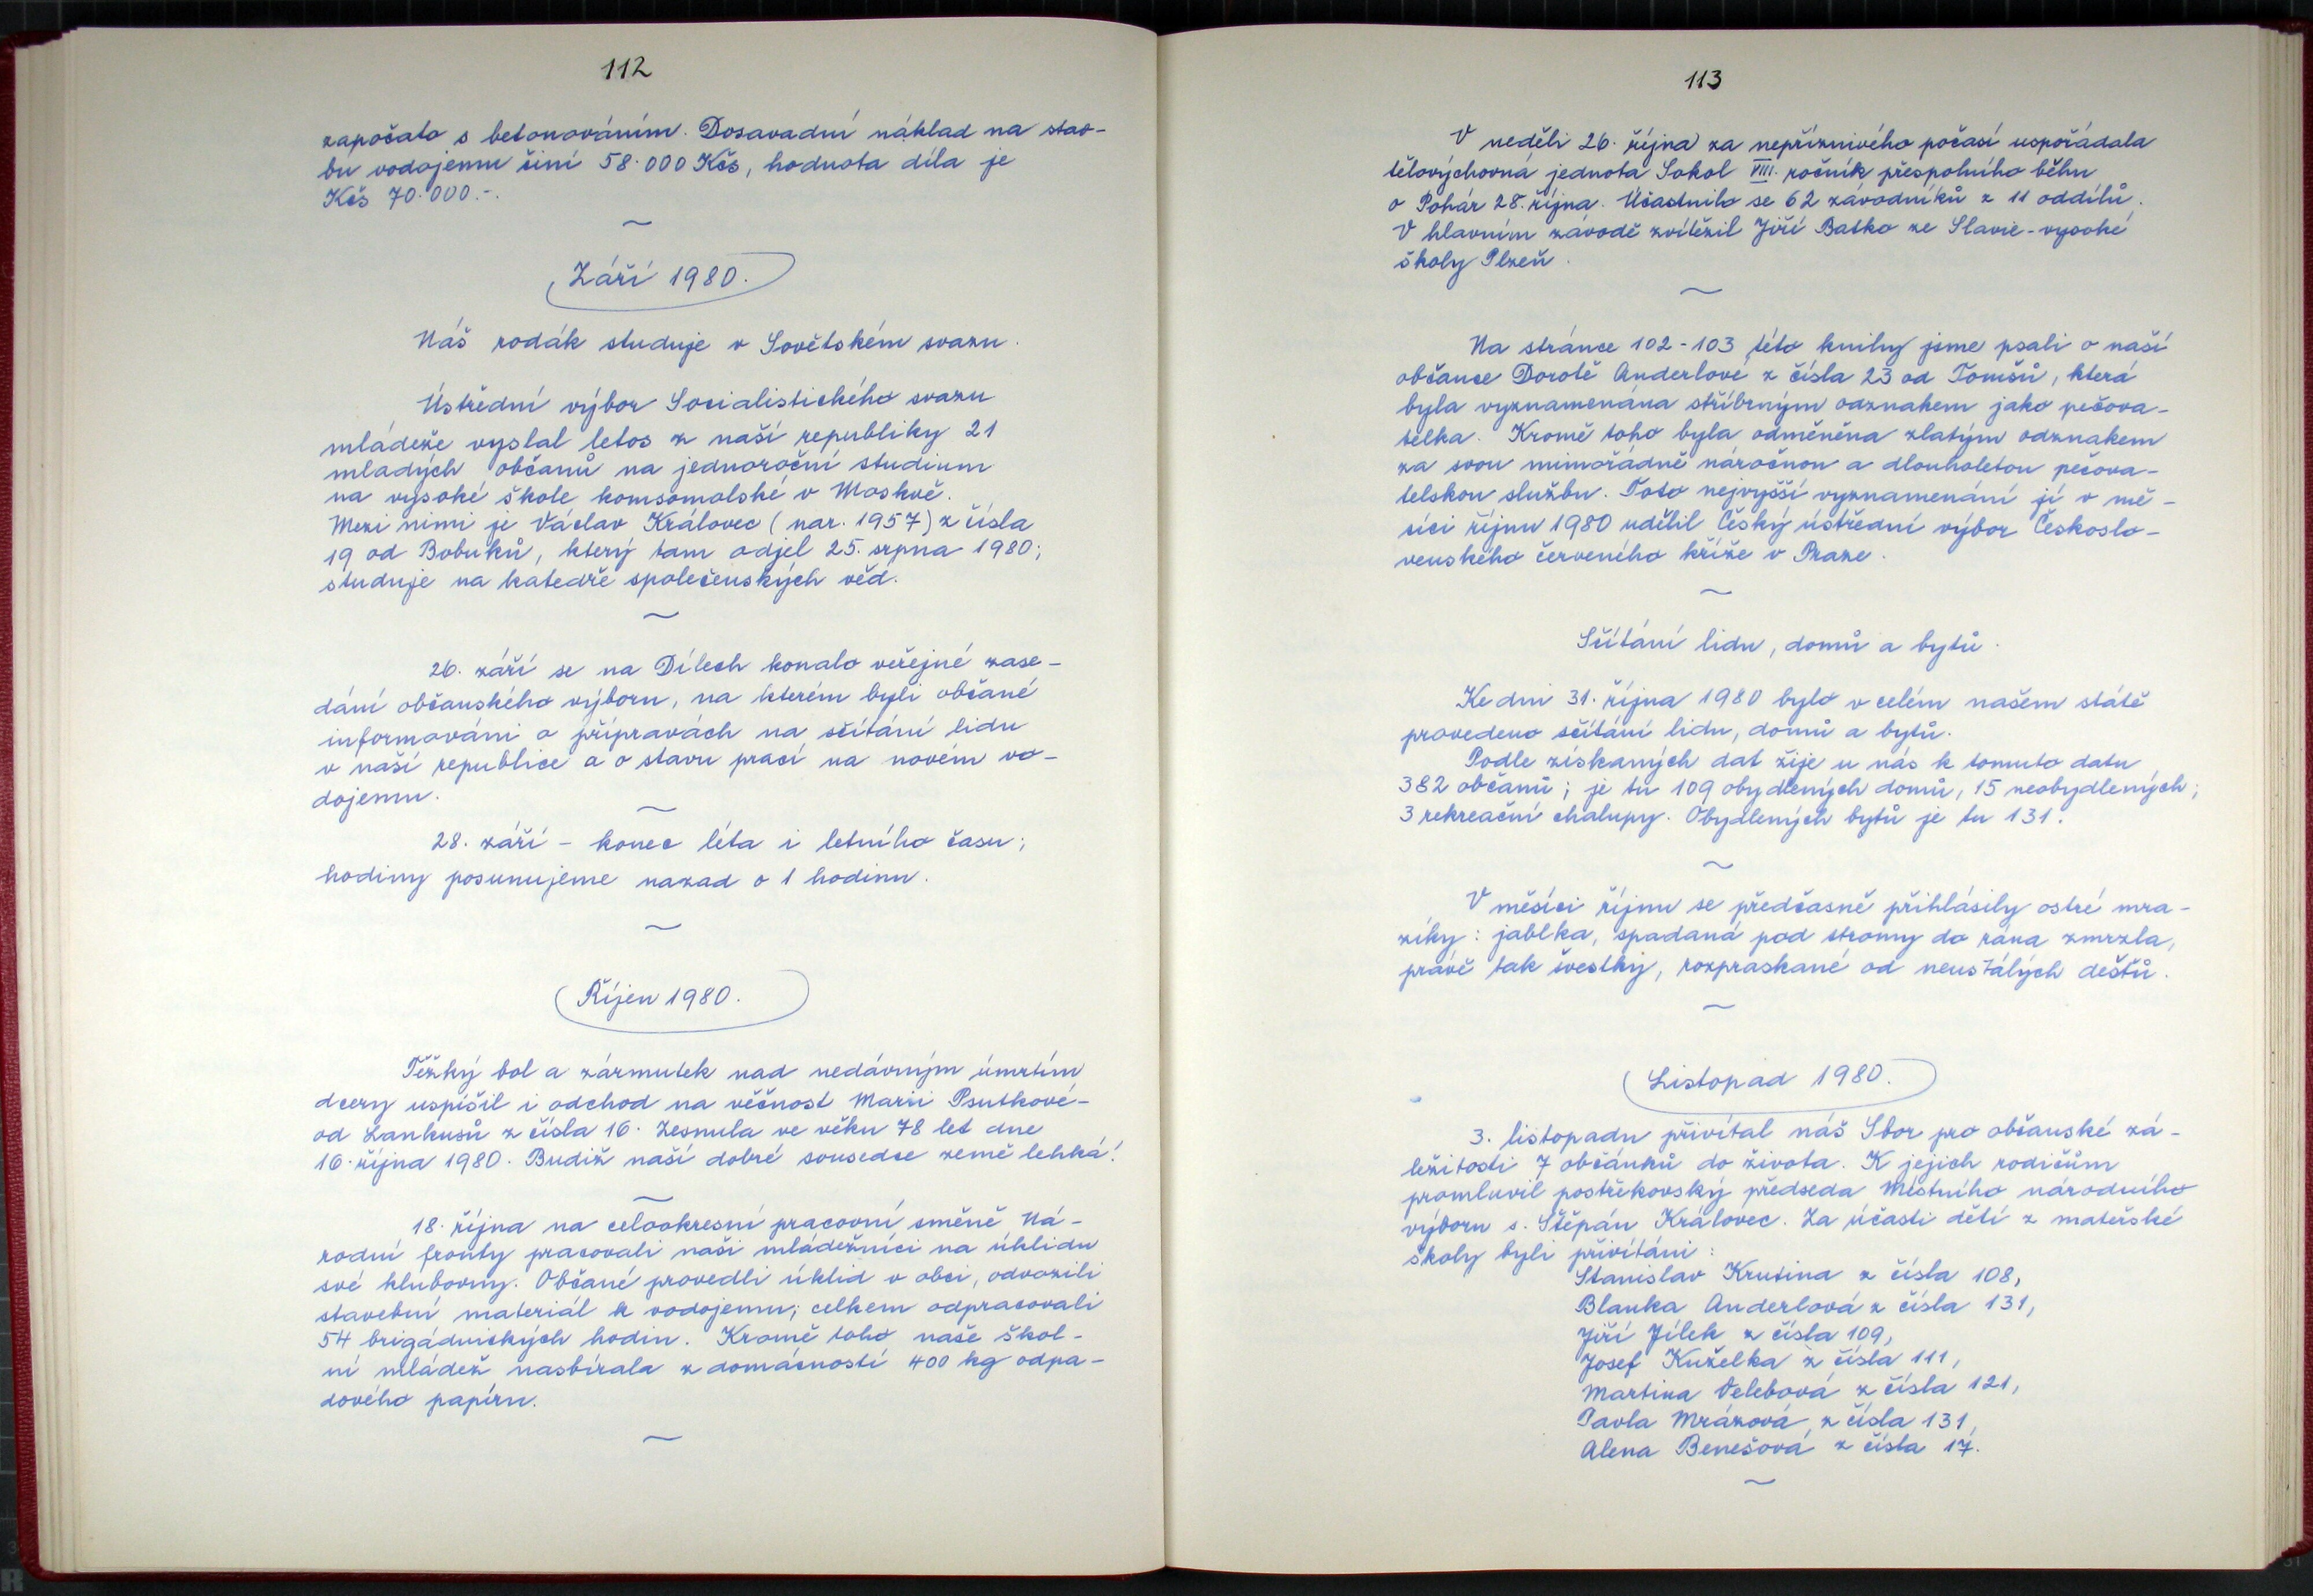 112
započato s betonováním. Dosavadní náklad na stav-
bu vodojemu činí 58.000 Kčs, hodnota díla je
Kčs 70.000.-.
~
Září 1980.
Náš rodák studuje v Sovětském svazu.
Ústřední výbor Socialistického svazu
mládeže vyslal letos z naší republiky 21
mladých občanů na jednoroční studium
na vysoké škole komsomolské v Moskvě.
Mezi nimi je Václav Královec (nar. 1957) z čísla
19 od Bobuků, který tam odjel 25. srpna 1980;
studuje na katedře společenských věd.
~
26. září se na Dílech konalo veřejné zase-
dání občanského výboru, na kterém byli občané
informováni o přípravách na sčítání lidu
v naší republice a o stavu prací na novém vo-
dojemu.
~
28. září - konec léta i letního času;
hodiny posunujeme nazad o 1 hodinu.
~
Říjen 1980.
Těžký bol a zármutek nad nedávným úmrtím
dcery uspíšil i odchod na věčnost Marii Psutkové-
od Lankusů z čísla 16. Zesnula ve věku 78 let dne
16. října 1980. Budiž naší dobré sousedce země lehká!
~
18. října na celookresní pracovní směně Ná-
rodní fronty pracovali naši mládežníci na úklidu
své klubovny. Občané provedli úklid v obci, odvozili
stavební materiál k vodojemu; celkem odpracovali
54 brigádnických hodin. Kromě toho naše škol-
ní mládež nasbírala z domácností 400 kg odpa-
dového papíru.
~
113
V neděli 26. října za nepříznivého počasí uspořádala
tělovýchovná jednota Sokol VIII. ročník přespolního běhu
o Pohár 28. října. Účastnilo se 62 závodníků z 11 oddílů.
V hlavním závodě zvítězil Jiří Batko ze Slavie-vysoké
školy Plzeň.
~
Na stránce 102-103 této knihy jsme psali o naší
občance Dorotě Anderlové z čísla 23 od Tomšů, která
byla vyznamenána stříbrným odznakem jako pečova-
telka. Kromě toho byla odměněna zlatým odznakem
za svou mimořádně náročnou a dlouholetou pečova-
telskou službu. Toto nejvyšší vyznamenání jí v mě-
síci říjnu 1980 udělil Český ústřední výbor Českoslo-
venského červeného kříže v Praze.
~
Sčítání lidu, domů a bytů.
Ke dni 31. října 1980 bylo v celém našem státě
provedeno sčítání lidu, domů a bytů.
Podle získaných dat žije u nás k tomuto datu
382 občanů; je tu 109 obydlených domů, 15 neobydlených;
3 rekreační chalupy. Obydlených bytů je tu 131.
~
V měsíci říjnu se předčasně přihlásily ostré mra-
zíky: jablka, spadaná pod stromy do rána zmrzla,
právě tak švestky, rozpraskané od neustálých dešťů.
~
Listopad 1980.
3. listopadu přivítal náš Sbor pro občanské zá-
ležitosti 7 občánků do života. K jejich rodičům
promluvil postřekovský předseda Místního národního
výboru s. Štěpán Královec. Za účasti dětí z mateřské
školy byli přivítáni:
Stanislav Krutina z čísla 108,
Blanka Anderlová z čísla 131,
Jiří Jílek z čísla 109,
Josef Kuželka z čísla 111,
Martina Velebová z čísla 121,
Pavla Mrázová z čísla 131,
Alena Benešová z čísla 17.
~